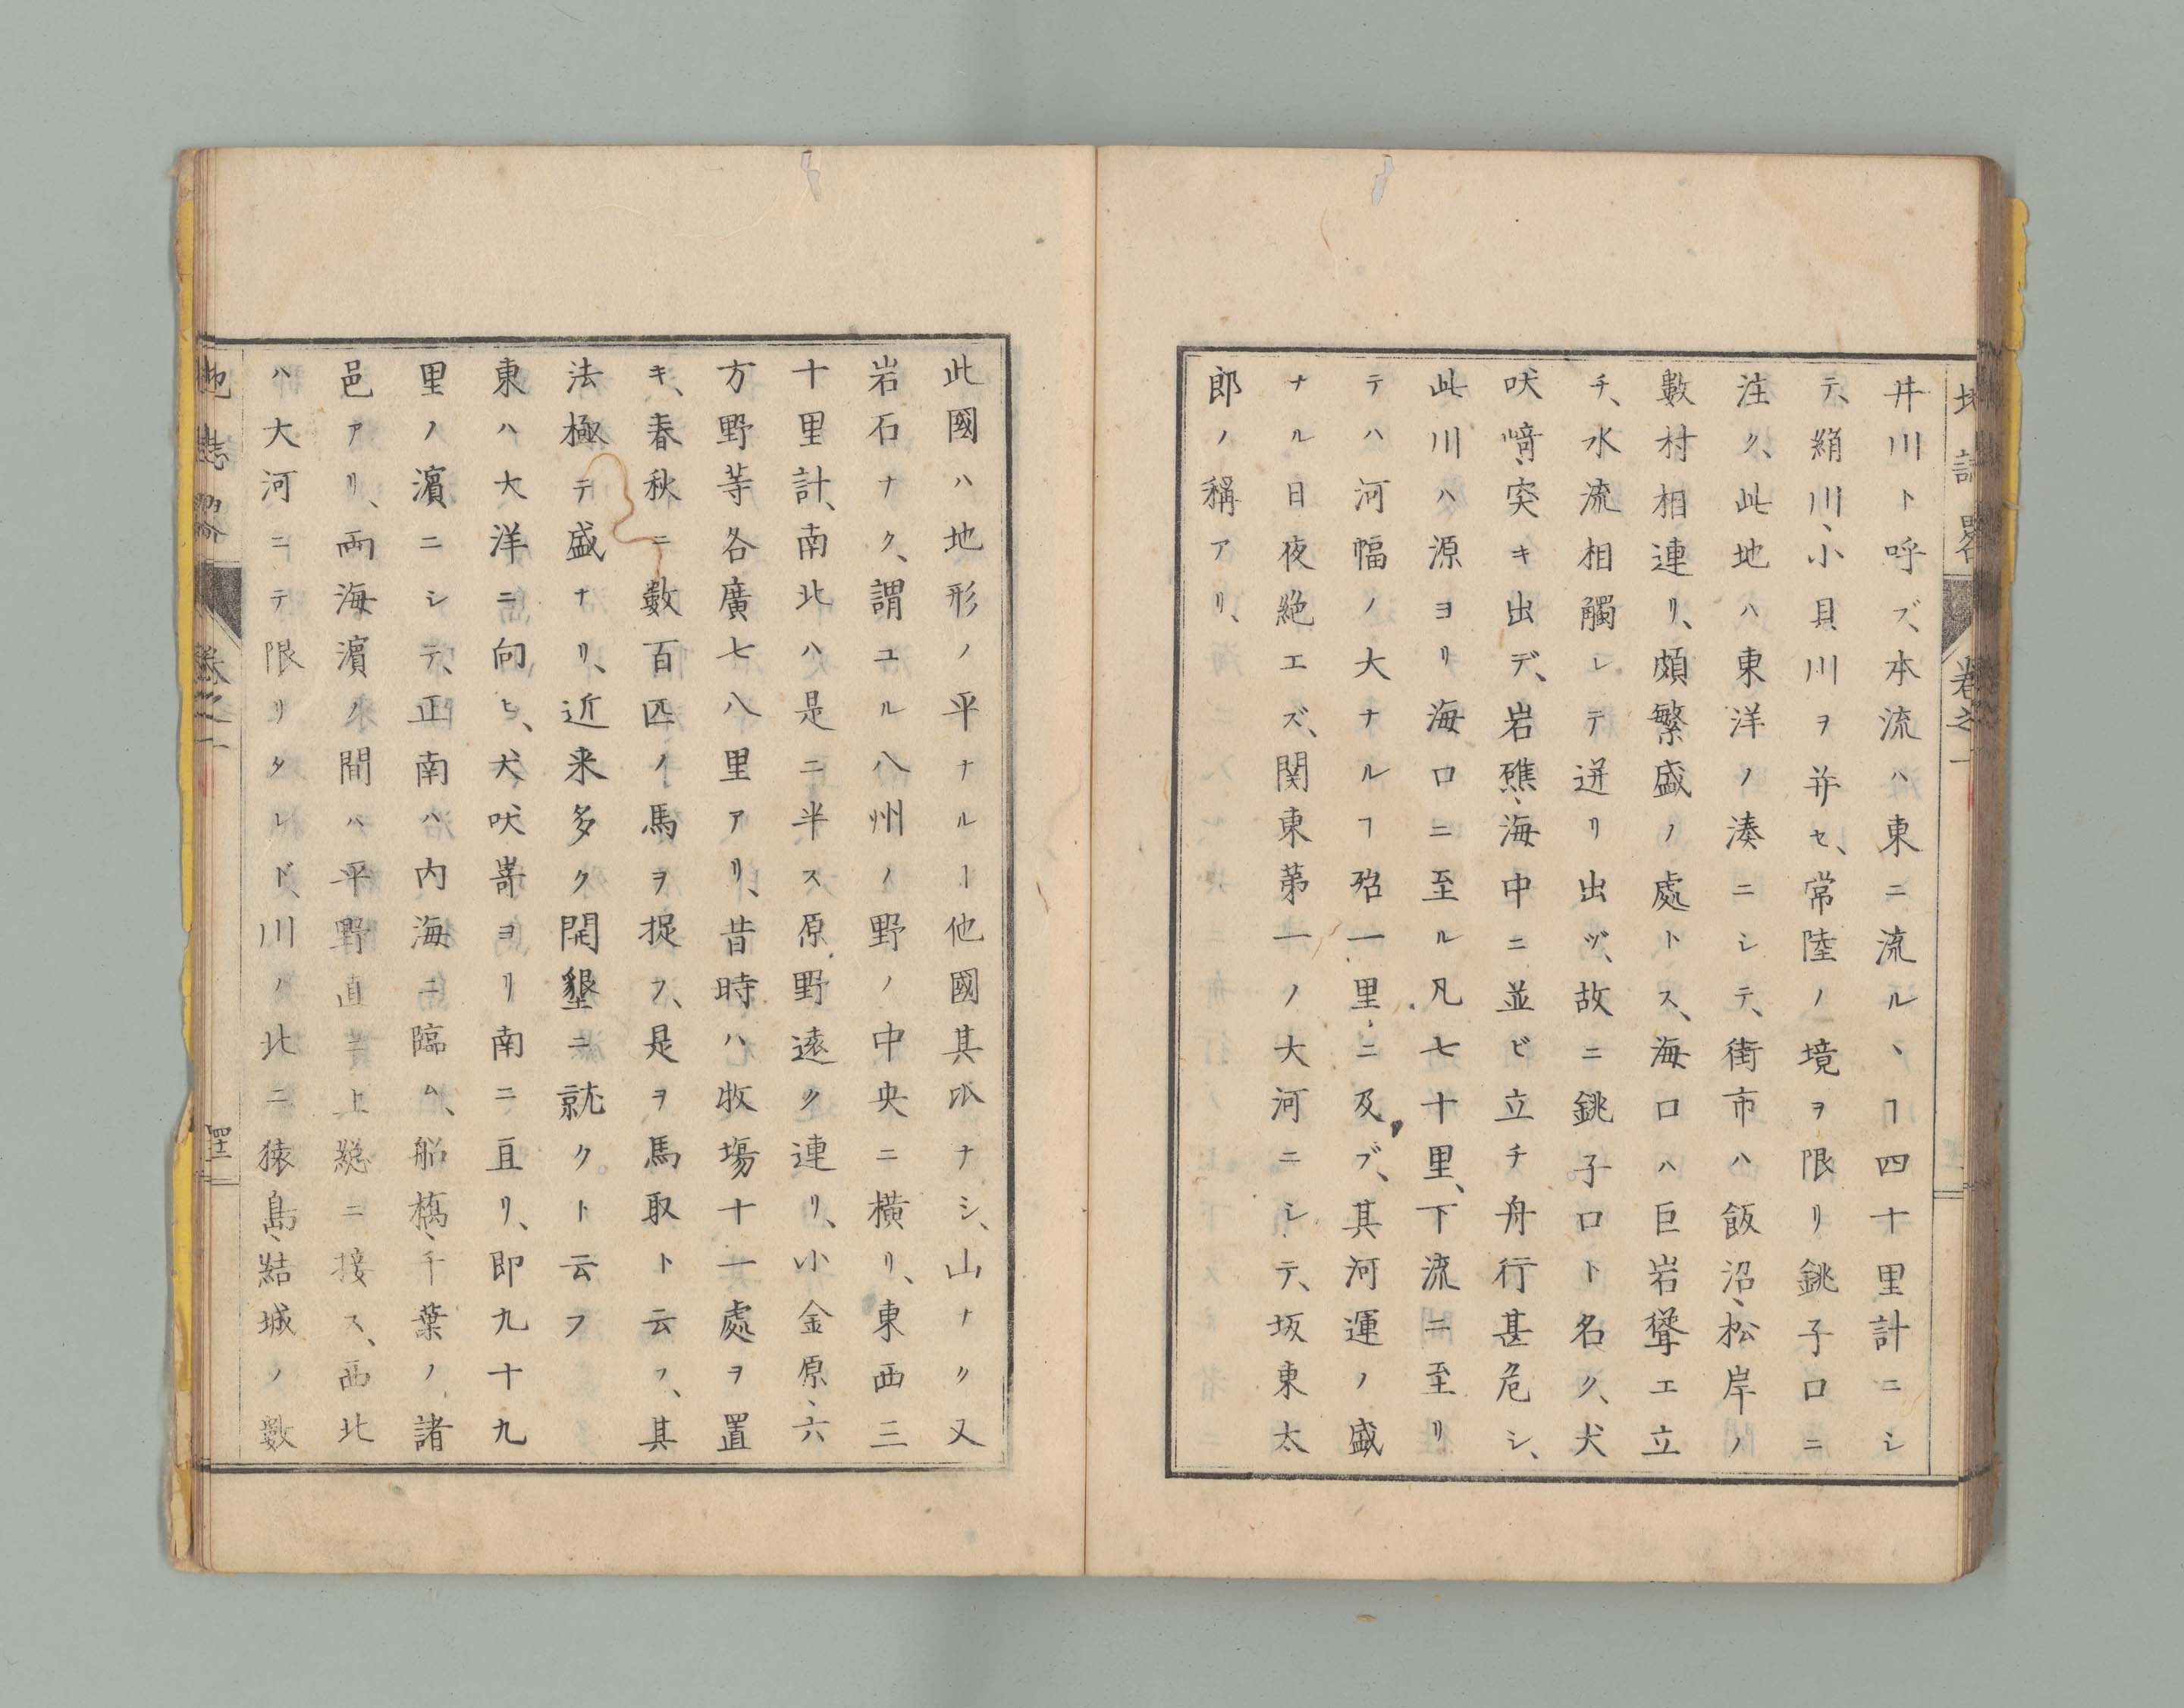 地誌畧 巻之一
井川ト呼ズ、本流ハ東ニ流ルヽヿ四十里計ニシ
テ、絹川、小貝川ヲ并セ、常陸ノ境ヲ限リ銚子口ニ
注ク、此地ハ東洋ノ湊ニシテ、街市ハ飯沼、松岸ノ
數村相連リ、頗繁盛ノ處トス、海口ハ巨岩聳エ立
チ、水流相觸レテ迸リ出ヅ、故ニ銚子口ト名ク、犬
吠﨑、突キ出デ、岩礁、海中ニ並ビ立チ舟行甚危シ、
此川ハ源ヨリ海口ニ至ル凡七十里、下流ニ至リ
テハ河幅ノ大ナルヿ殆一里、ニ及ブ、其河運ノ盛
ナル日夜絶エズ、関東第一ノ大河ニシテ、坂東太
郎ノ稱アリ、
此國ハ地形ノ平ナルー他國其比ナシ、山ナク又
岩石ナク、謂ユル八州ノ野ノ中央ニ横リ、東西三
十里計、南北ハ是ニ半ス原野遠ク連リ、小金原、六
方野等各廣七八里アリ、昔時ハ牧場十一處ヲ置
キ、春秋ニ數百匹ノ馬ヲ捉フ、是ヲ馬取ト云フ、其
法極テ盛ナリ、近来多ク開墾ニ就クト云フ
東ハ大洋ニ向ヒ、犬吠嵜ヨリ南ニ亘リ、即九十九
里ノ濱ニシテ、正南ハ内海ニ臨ム、船橋、千葉ノ諸
邑アリ、両海濱ノ間ハ平野直ニ上総ニ接ス、西北
ハ大河ニテ限リタレド、川ノ北ニ猿島、結城ノ數
地誌畧 巻之一